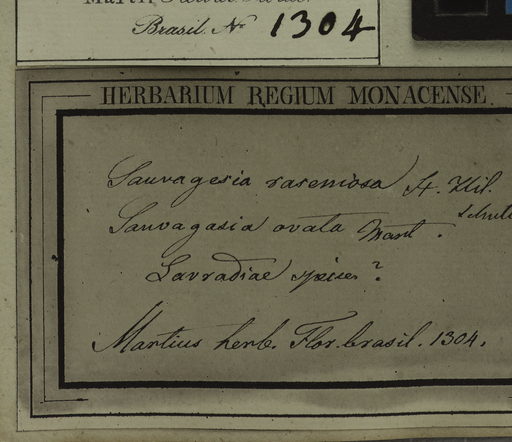 Brasil. No 1304
HERBARIUM REGIUM MONACENSE.
Sauvagesia racemosa St. Hil.
Sauvagasia ovata Mart.
Lavradiae species?
Martius herb. Flor. brasil. 1304.